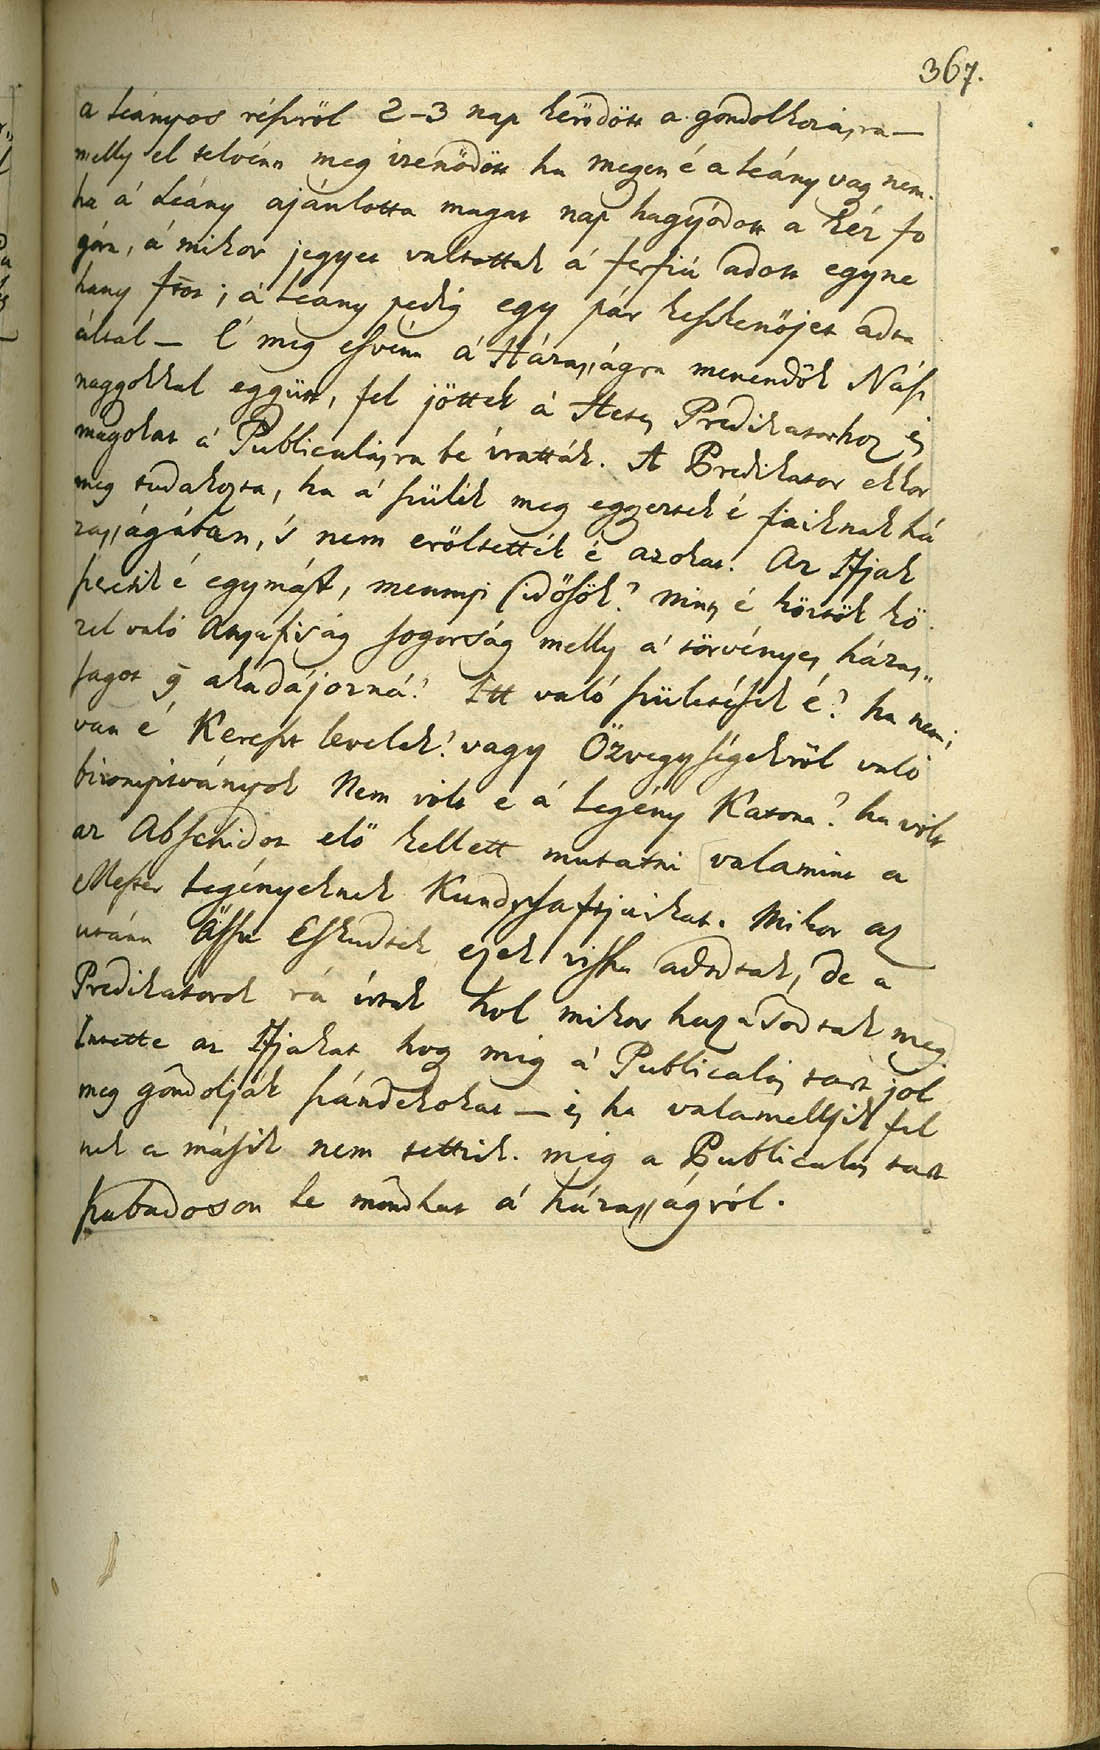 367.
a Leányos részröl 2-3 nap kérödött a gondolkozásra —
melly el telvénn meg izenödött ha megen é a Leány vag nem.
ha á Leány ajánlotta magat nap hagyódott a kéz fo
góra, á mikor jegyet valtottak á ferfiú adott egyne
hany frot; á Leany pedig egy pár keszkenöjet adta
által — E meg esvénn á Házasságra menendök Nász
naggokkal eggütt, fel jöttek á Hets Predikatorhoz és
magokat á Publicalásra bé íratták. A Predikator ekkor
meg tudakozta, ha á szülék meg eggyeztek é fiaiknak há
zasságában, 's nem erőltették é azokat? Az Ifjak
szeretik é egymást, mennyi idősök? nints é köztök kö
zel való Atyafiság sogorság melly á törvényes házas„
sagot akadájozná? Itt való születésüek é? ha nem;
van é Kereszt levelek? vagy Özvegységekröl való
bizonyitványok Nem vólt e á Legény Katona? ha vólt
az Abschidot elö kellett mutatni valamint a
Mester Legényeknek Kundschaftjaikat. Mikor az
utánn Öszve Esküdtek ezek vissza adódtak, de a
Predikatorok rá írtak hol mikor hazasodtak meg
Intette az Ifjakat hog mig á Publicalás tart jól
meg gondolják szándékokat — és ha valamellyik fel
nek a másik nem tettzik. mig a Publicalás tart
szabadoson le mondhat á házasságról.